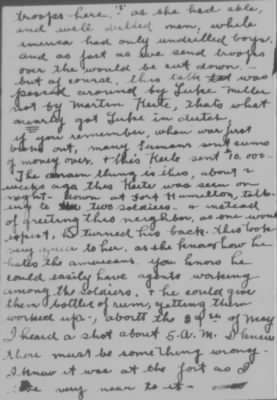 troops here." as she had able,
and well drilled men, while
america had only undrilled boys.
and as fast as we send troops
over the would be cut down -
but of course, this talk was
passed around by Luke Miller
not by Martin Keete, thats what
nearly got Luke in dutch,
if you remember, when war first
broke out, many Germans sent sums
of money over, & this Keete sent 10,000-
The main thing is this, about 2
weeks ago this Keete was seen on
night- down at Fort Hamilton, talk-
ing to two soldiers - instead
of greeting this neighbor, as one would
expect, he turned his back. this look
very to her, as she know how he
hates the americans. you know he
could easily have agents working
among the soldiers, & he could give
them bottles of rum, getting them
worked up., about the of May
I heard a shot about 5. A.M. I knew
there must be something wrong -
I knew it was at the fort as I
very near to it -